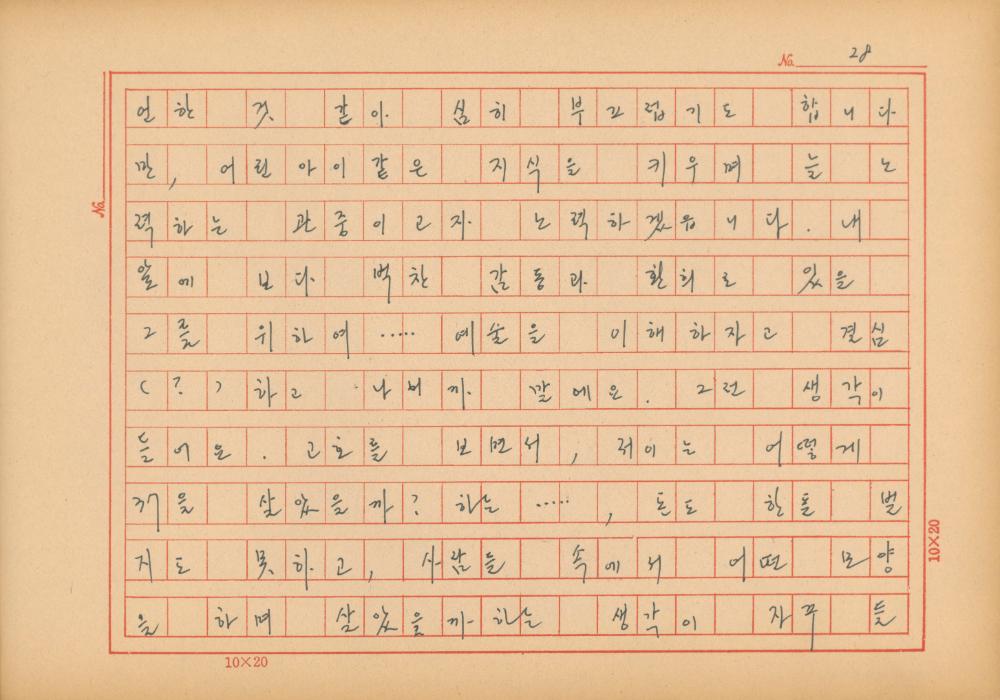 No. 28
언한 것 같아 심히 부끄럽기도 합니다
만, 어린아이같은 지식을 키우며 늘 노
력하는 관중이고자 노력하겠읍니다. 내
앞에 보다 벅찬 감동과 환희로 있을
그를 위하여 ····· 예술을 이해하자고 결심
(?) 하고 나니까 말예요. 그런 생각이
들어요. 고호를 보면서, 저이는 어떻게
을 살았을까? 하는 ·····, 돈도 한톨 벌
지도 못하고, 사람들 속에서 어떤 모양
을 하며 살았을까 하는 생각이 자꾸 들
No.
10×20
10×20